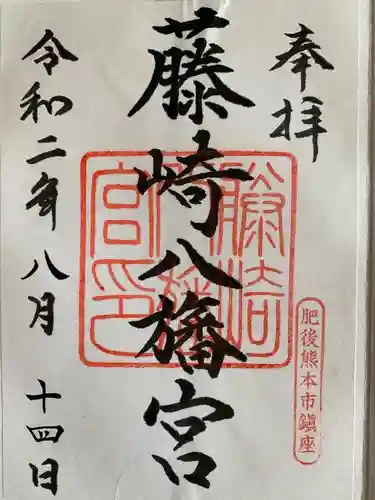 奉拝
肥後熊本市鎮座
藤崎八旛宮
令和二年八月十四日